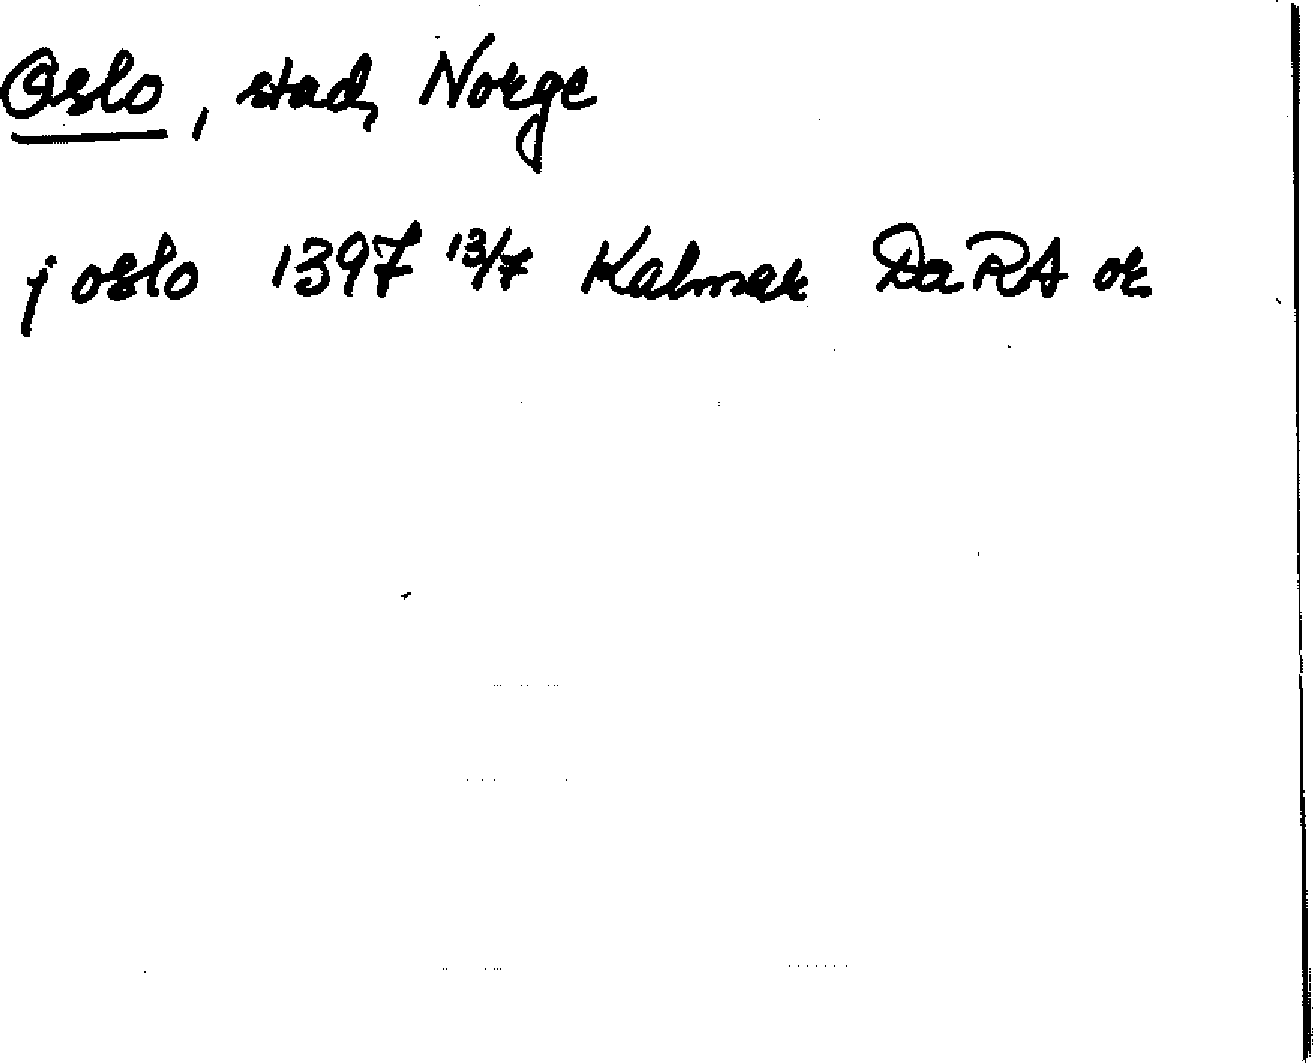 Oslo, stad, Norge
j oslo 1397 13/7 Kalmar DaRA or.